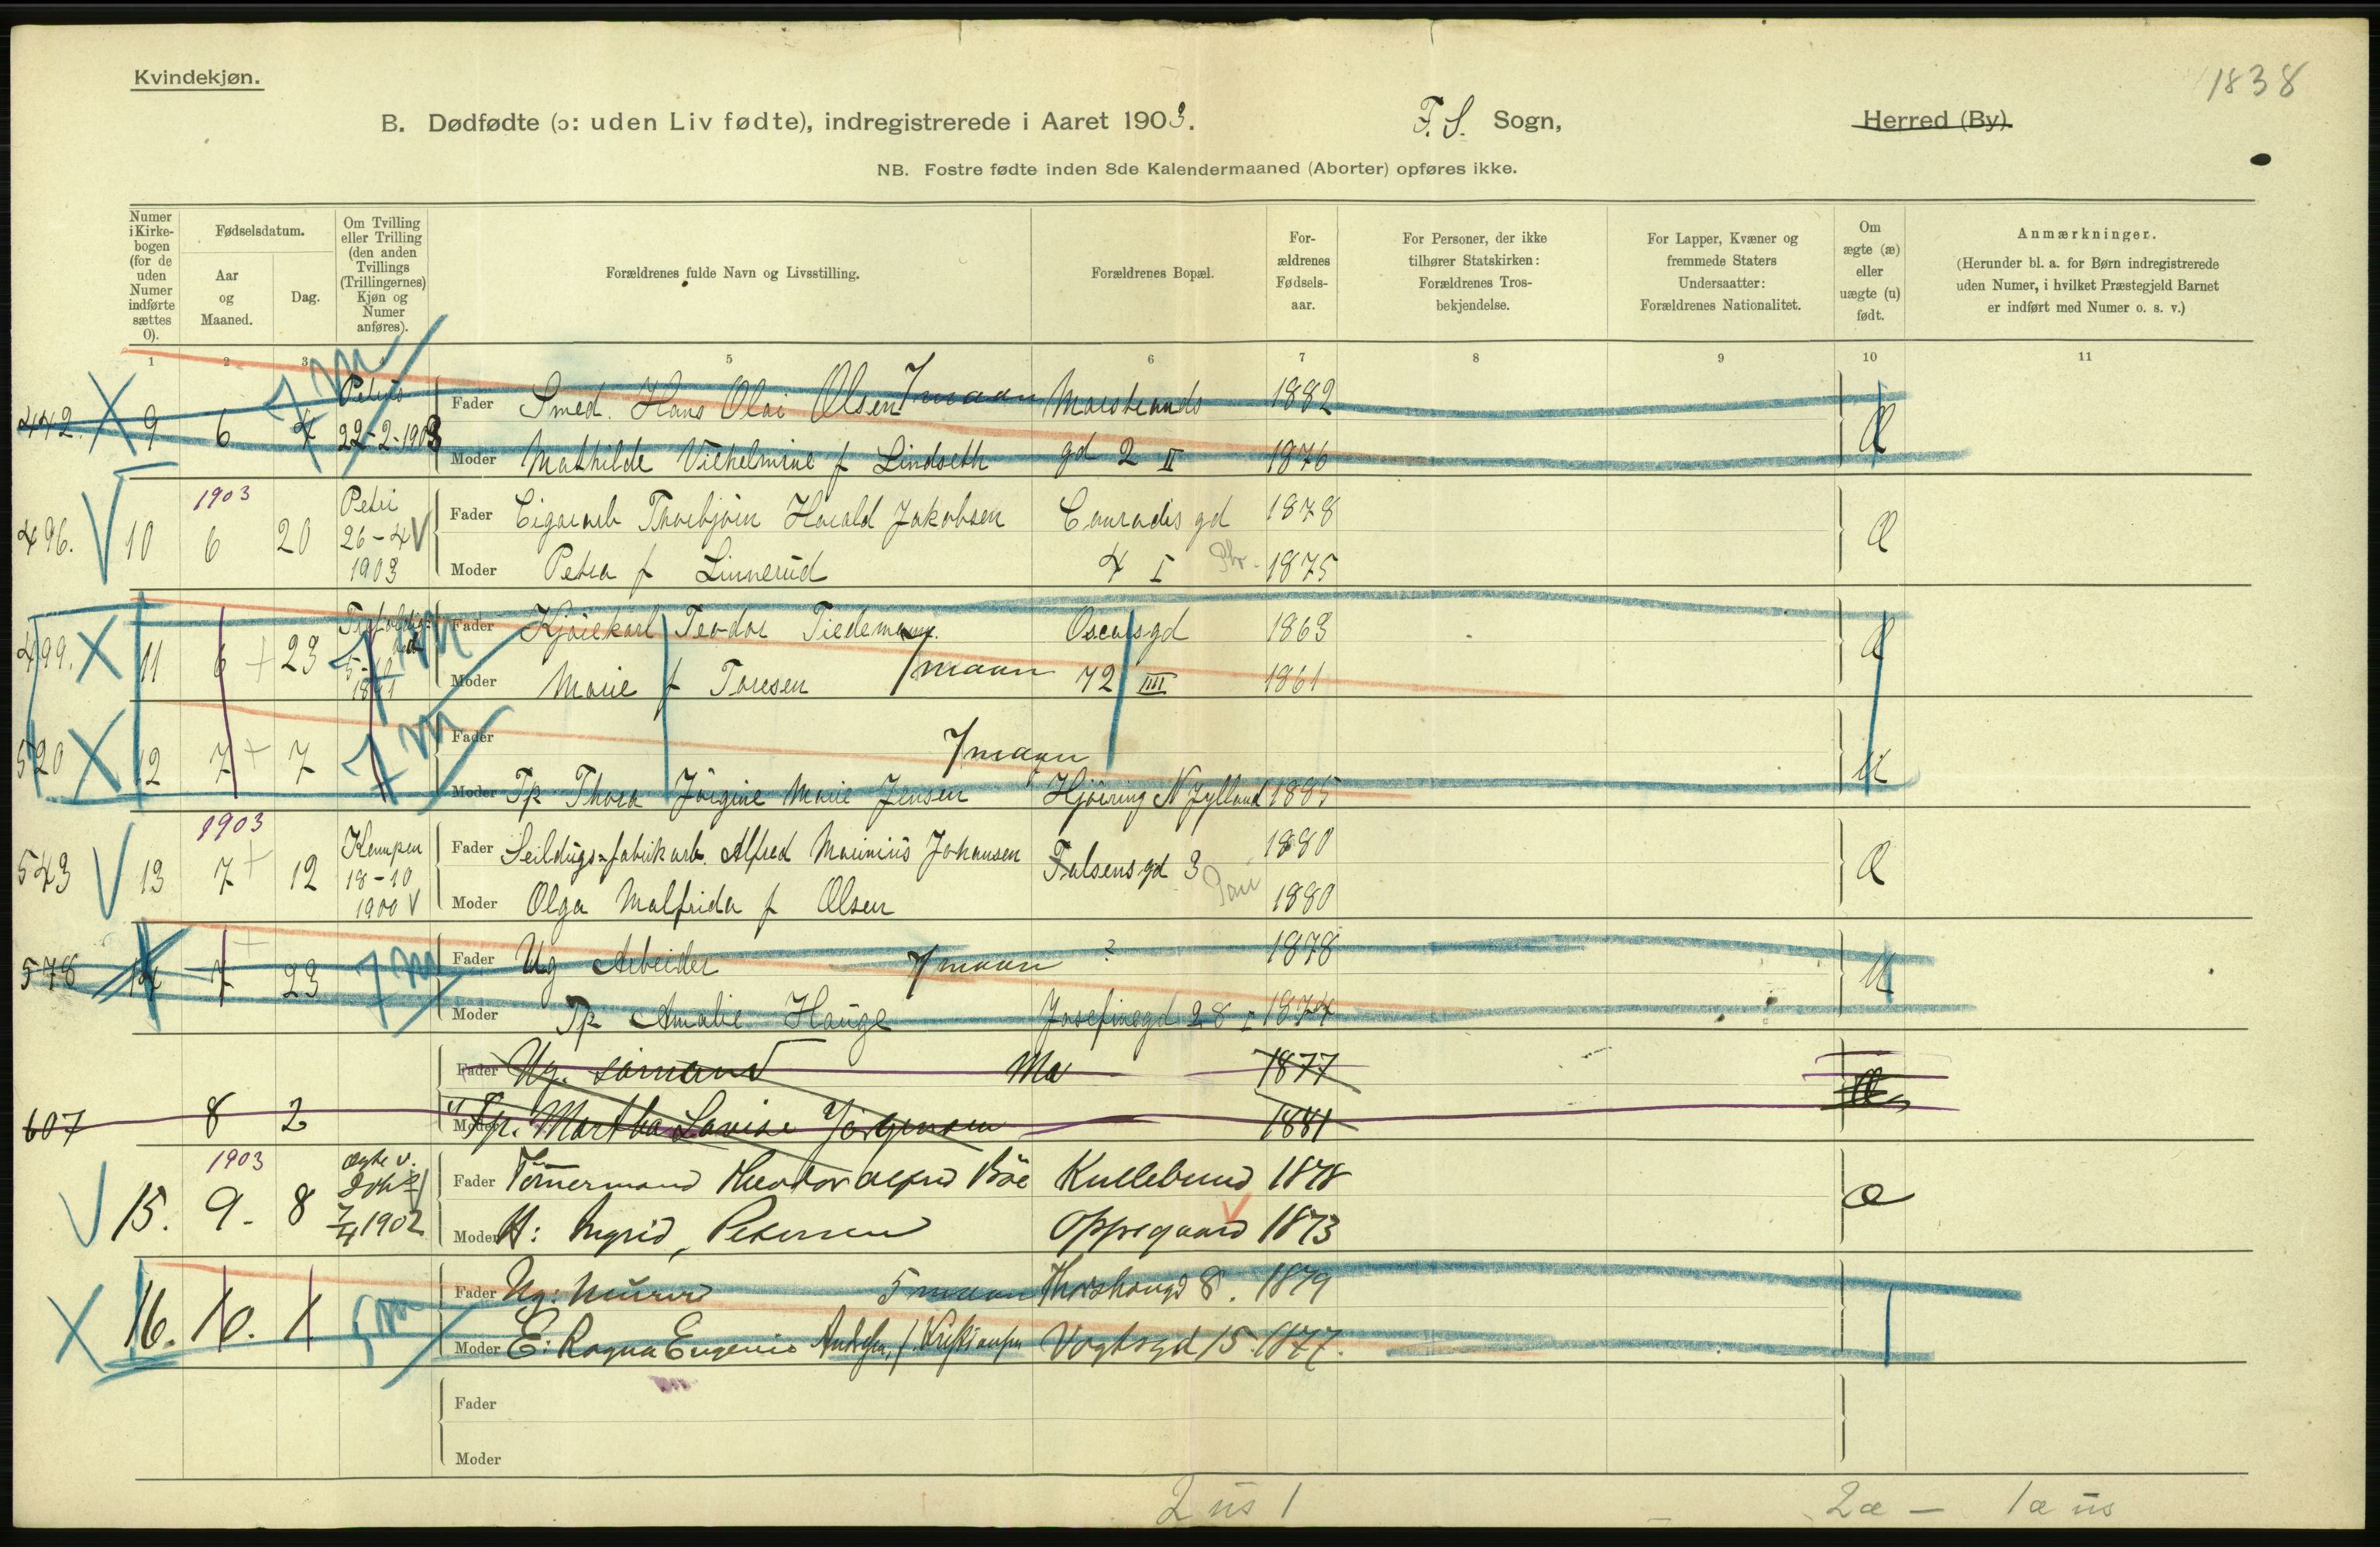 Kvindekjøn.
1838
B. Dødfødte (ɔ: uden Liv fødte), indregistrerede i Aaret 1903. F. S. Sogn, Herred (By).
NB. Fostre fødte inden 8de Kalendermaaned (Aborter) opføres ikke.
Numer i Kirke-bogen (for de uden Numer indførte sættes 0).
Fødselsdatum.
Aar og Maaned.
Dag.
Om Tvilling eller Trilling (den anden Tvillings (Trillingernes) Kjøn og Numer anføres).
Forældrenes fulde Navn og Livsstilling.
Forældrenes Bopæl.
For-ældrenes Fødsels-aar.
For Personer, der ikke tilhører Statskirken: Forældrenes Tros-bekjendelse.
For Lapper, Kvæner og fremmede Staters Undersaatter: Forældrenes Nationalitet.
Om ægte (æ) eller uægte (u) født.
Anmærkninger.
(Herunder bl. a. for Børn indregistrerede uden Numer, i hvilket Præstegjeld Barnet er indført med Numer o. s. v.)
1 2 3 4 5 6 7 8 9 10 11
442. 9 6 4 7 m Petrus 22-2-1903
Fader Smed. Hans Olai Olsen 7 maan Marstrands 1882 Æ
Moder Mathilde Vilhelmine f Lindseth gd 2 II 1876
496. 10 1903 6 20 Petri 26-4 1903
Fader Cigararb Thorbjörn Harald Jakobsen Conradis gd 1878 Æ
Moder Petra f Linnerud 4 I 1875
499. 11 6 + 23 7 m
Fader Kjörekarl Teodor Tiedemann. Oscarsgd 1863 Æ
Moder Marie f Toresen 7 maan 72 IIII 1861
520 12 7 + 7 7 m
Fader 7 maan
Moder Tp Thora Jörgine Marie Jensen Hjöring N Jylland 1885 U
543 13 1903 7 + 12 Kampen 18-10 1900 V
Fader Seildugs-fabrikarb. Alfred Marinius Johansen Falsens gd 3 1880 Æ
Moder Olga Malfrida f Olsen 1880
578 14 7 + 23 7 m
Fader Ug Arbeider 7 maan ? 1878 U
Moder Tp Amalie Hauge Josefinegd 28 I 1874
607 8 2
Fader Ug. sömand Ma 1877
Moder Tp. Martha Lovise Jörgensen 1881
15. 1903 9. 8 1902
Fader Tömmermand Theodor Alfred Böe Kullebund 1878 æ
Moder H: Ingrid, Petersen Oppegaard 1873
16. 10. 1 5 m
Fader Ug: Murer 5 maan Thorshaugd 8. 1879
Moder E: Ragna Eugenie Andersen, f. Kristiansen Vogtsgd 15. 1877.
Fader
Moder
2 us 1 2æ — 1æ us